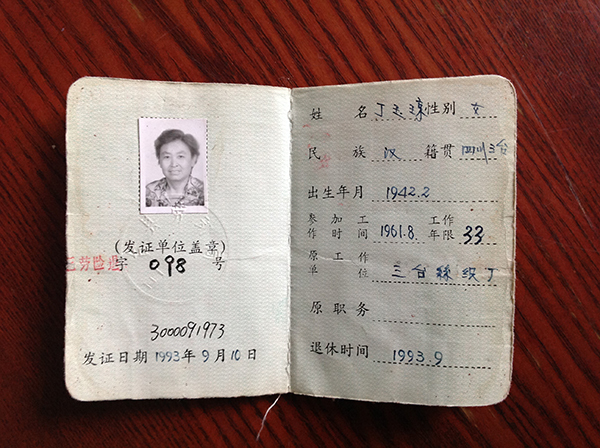 (发证单位盖章)
三劳险退字 098 号
3000091973
发证日期 1993年9月10日
姓名 丁志 性别 女
民族 汉 籍贯 四川三台
出生年月 1942.2
参加工作时间 1961.8 工作年限 33
原工作单位 三台丝织厂
原职务
退休时间 1993.9